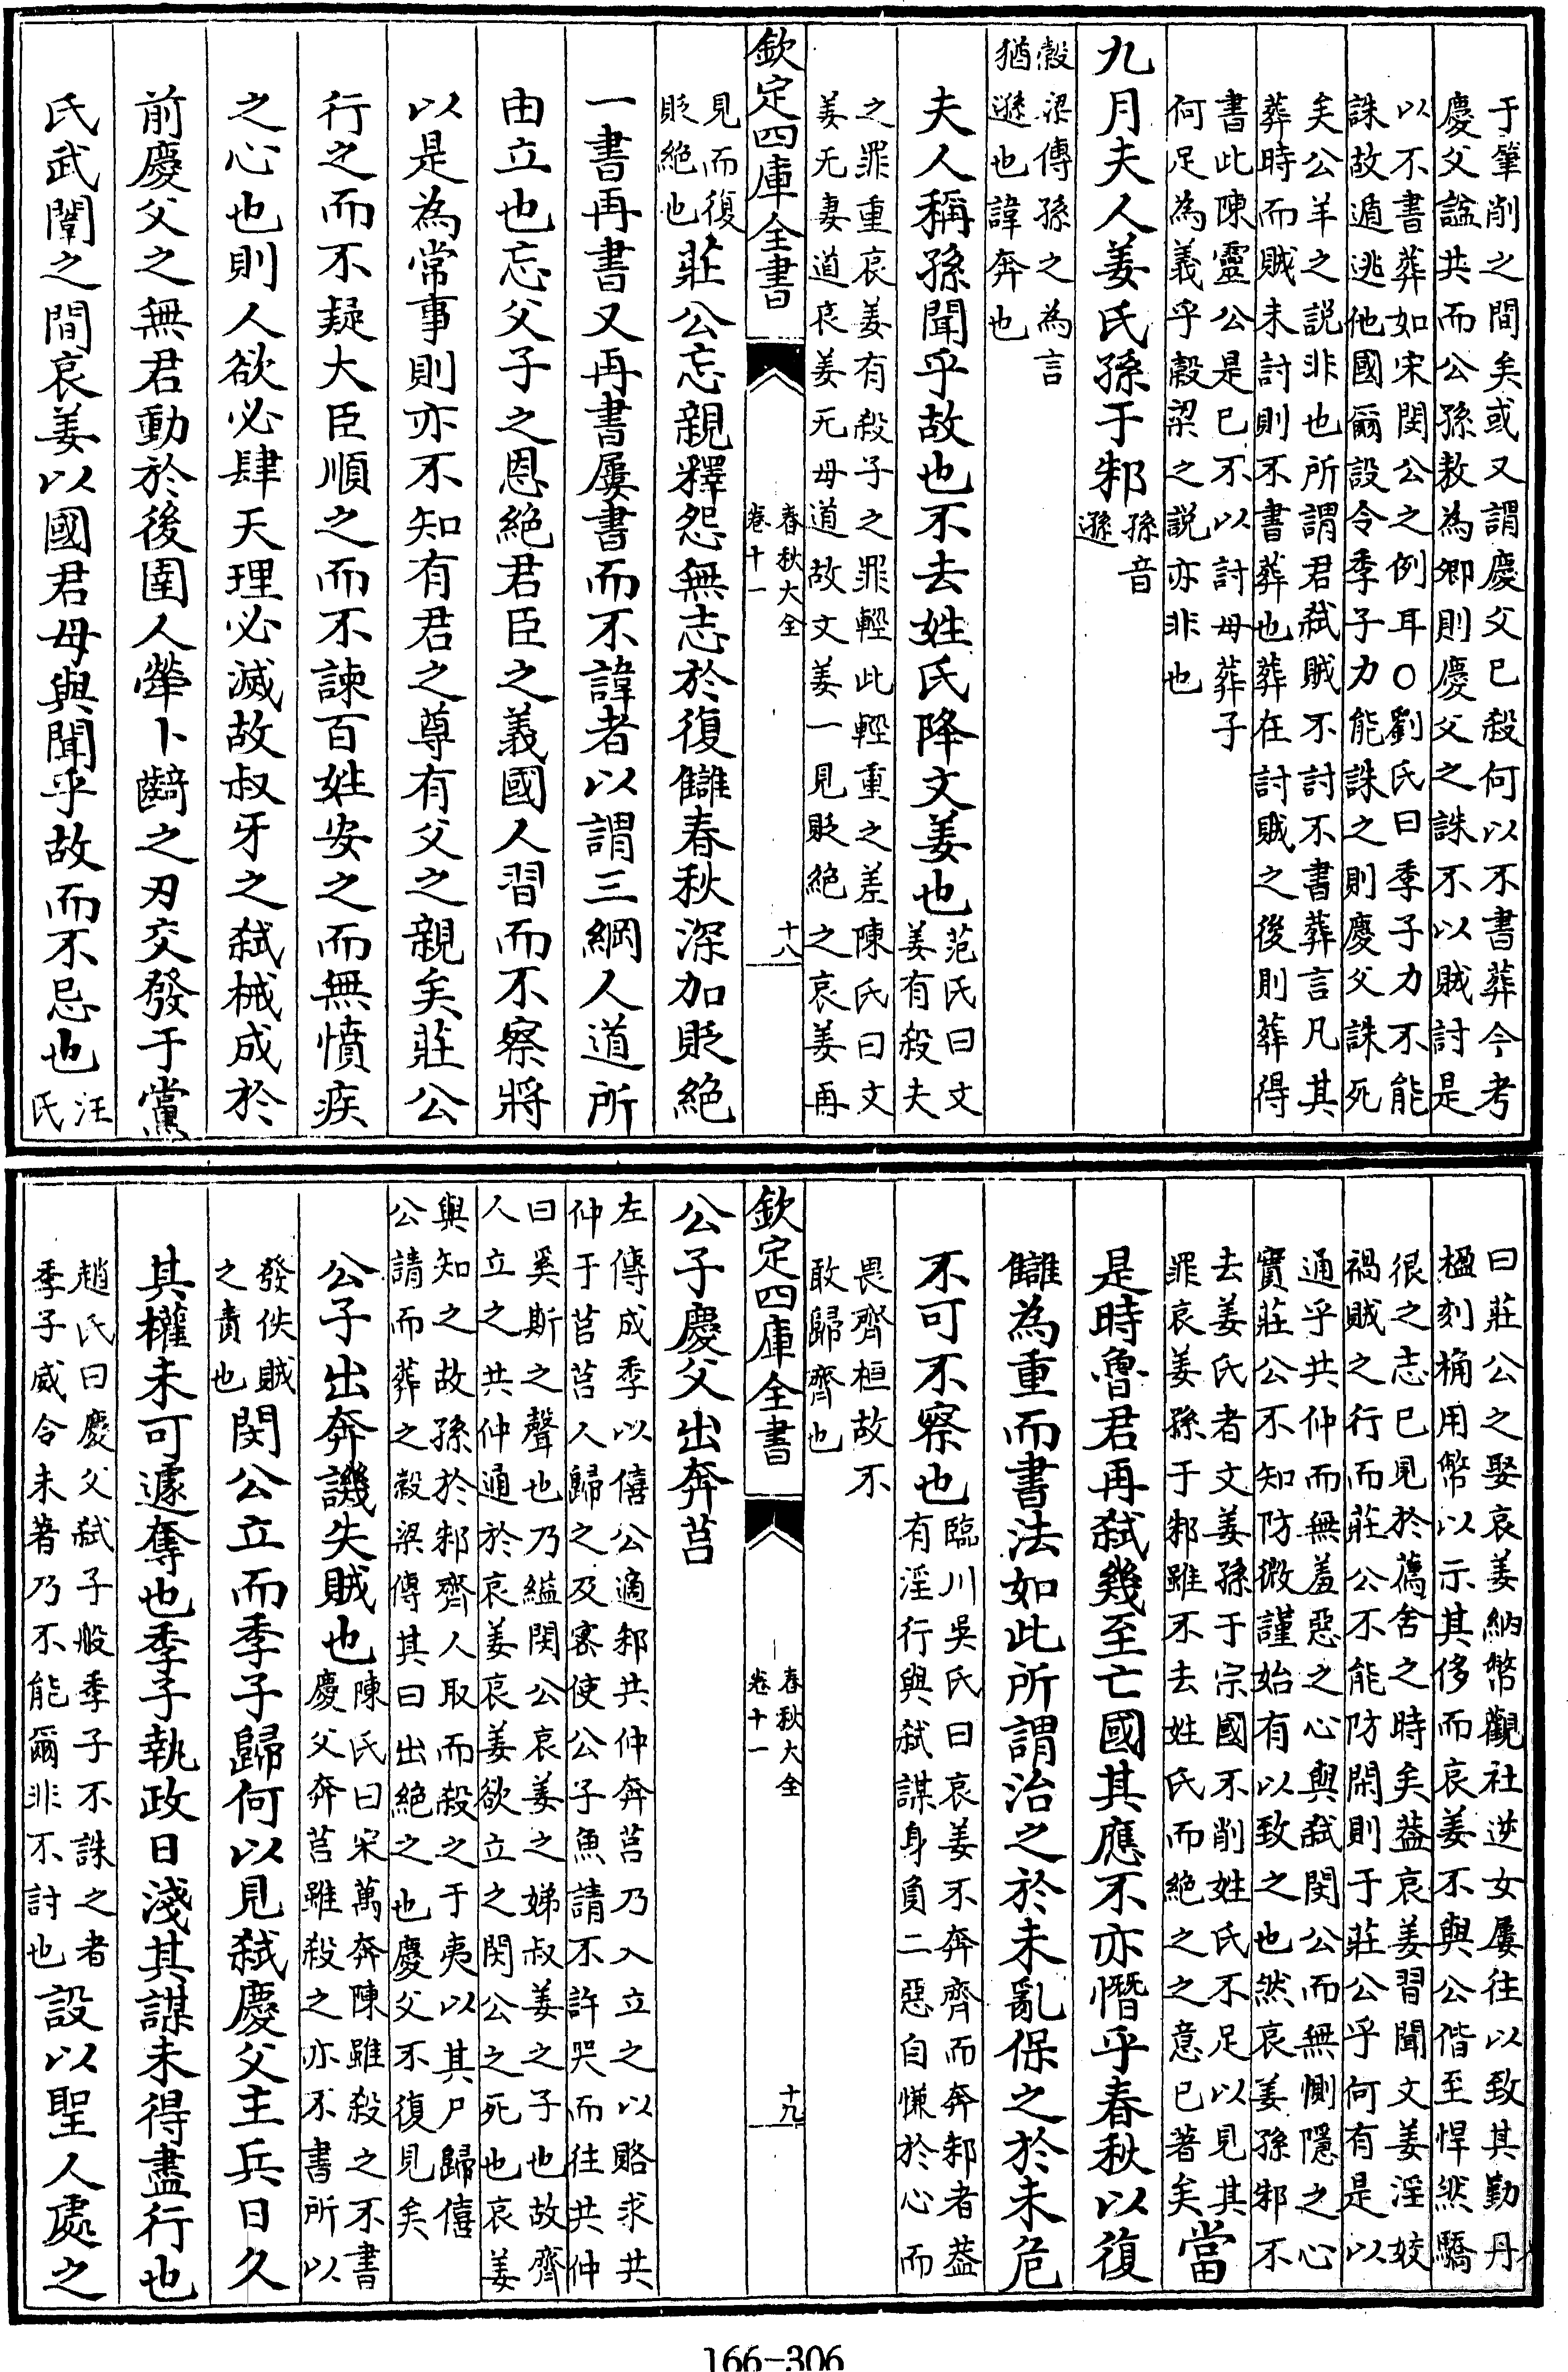 于筆削之間矣或又謂慶父已殺何以不書葬今考
慶父諡共而公孫敖為卿則慶父之誅不以賊討是
以不書葬如宋閔公之例耳○劉氏曰季子力不能
誅故遁逃他國爾設令季子力能誅之則慶父誅死
矣公羊之説非也所謂君弑賊不討不書葬言凡其
葬時而賊未討則不書葬也葬在討賊之後則葬得
書此陳靈公是已不以討母葬子
何足為義乎穀梁之説亦非也
九月夫人姜氏孫于邾
孫音
遜
穀梁傳孫之為言
猶遜也諱奔也
夫人稱孫聞乎故也不去姓氏降文姜也
范氏曰文
姜有殺夫
之罪重哀姜有殺子之罪輕此輕重之差陳氏曰文
姜无妻道哀姜无母道故文姜一見貶絶之哀姜再
欽定四庫全書
春秋大全
卷十一
十八
見而復
貶絶也
莊公忘親釋怨無志於復讎春秋深加貶絶
一書再書又再書屢書而不諱者以謂三綱人道所
由立也忘父子之恩絶君臣之義國人習而不察將
以是為常事則亦不知有君之尊有父之親矣莊公
行之而不疑大臣順之而不諫百姓安之而無憤疾
之心也則人欲必肆天理必滅故叔牙之弑械成於
前慶父之無君動於後圉人犖卜齮之刃交發于黨
氏武闈之間哀姜以國君母與聞乎故而不忌也
汪
氏
曰莊公之娶哀姜納幣觀社逆女屢往以致其勤丹
楹刻桷用幣以示其侈而哀姜不與公偕至悍然驕
很之志已見於蔿舍之時矣葢哀姜習聞文姜淫姣
禍賊之行而莊公不能防閑則于莊公乎何有是以
通乎共仲而無羞惡之心與弑閔公而無惻隱之心
實莊公不知防微謹始有以致之也然哀姜孫邾不
去姜氏者文姜孫于宗國不削姓氏不足以見其
罪哀姜孫于邾雖不去姓氏而絶之之意已著矣
當
是時魯君再弑幾至亡國其應不亦憯乎春秋以復
讎為重而書法如此所謂治之於未亂保之於未危
不可不察也
臨川吳氏曰哀姜不奔齊而奔邾者葢
有淫行與弑謀身負二惡自慊於心而
畏齊桓故不
敢歸齊也
欽定四庫全書
春秋大全
卷十一
十九
公子慶父出奔莒
左傳成季以僖公適邾共仲奔莒乃入立之以賂求共
仲于莒莒人歸之及密使公子魚請不許哭而往共仲
曰奚斯之聲也乃縊閔公哀姜之娣叔姜之子也故齊
人立之共仲通於哀姜哀姜欲立之閔公之死也哀姜
與知之故孫於邾齊人取而殺之于夷以其尸歸僖
公請而葬之穀梁傳其曰出絶之也慶父不復見矣
公子出奔譏失賊也
陳氏曰宋萬奔陳雖殺之不書
慶父奔莒雖殺之亦不書所以
發佚賊
之責也
閔公立而季子歸何以見弑慶父主兵日久
其權未可遽奪也季子執政日淺其謀未得盡行也
趙氏曰慶父弑子般季子不誅之者
季子威令未著乃不能爾非不討也
設以聖人處之
166-306